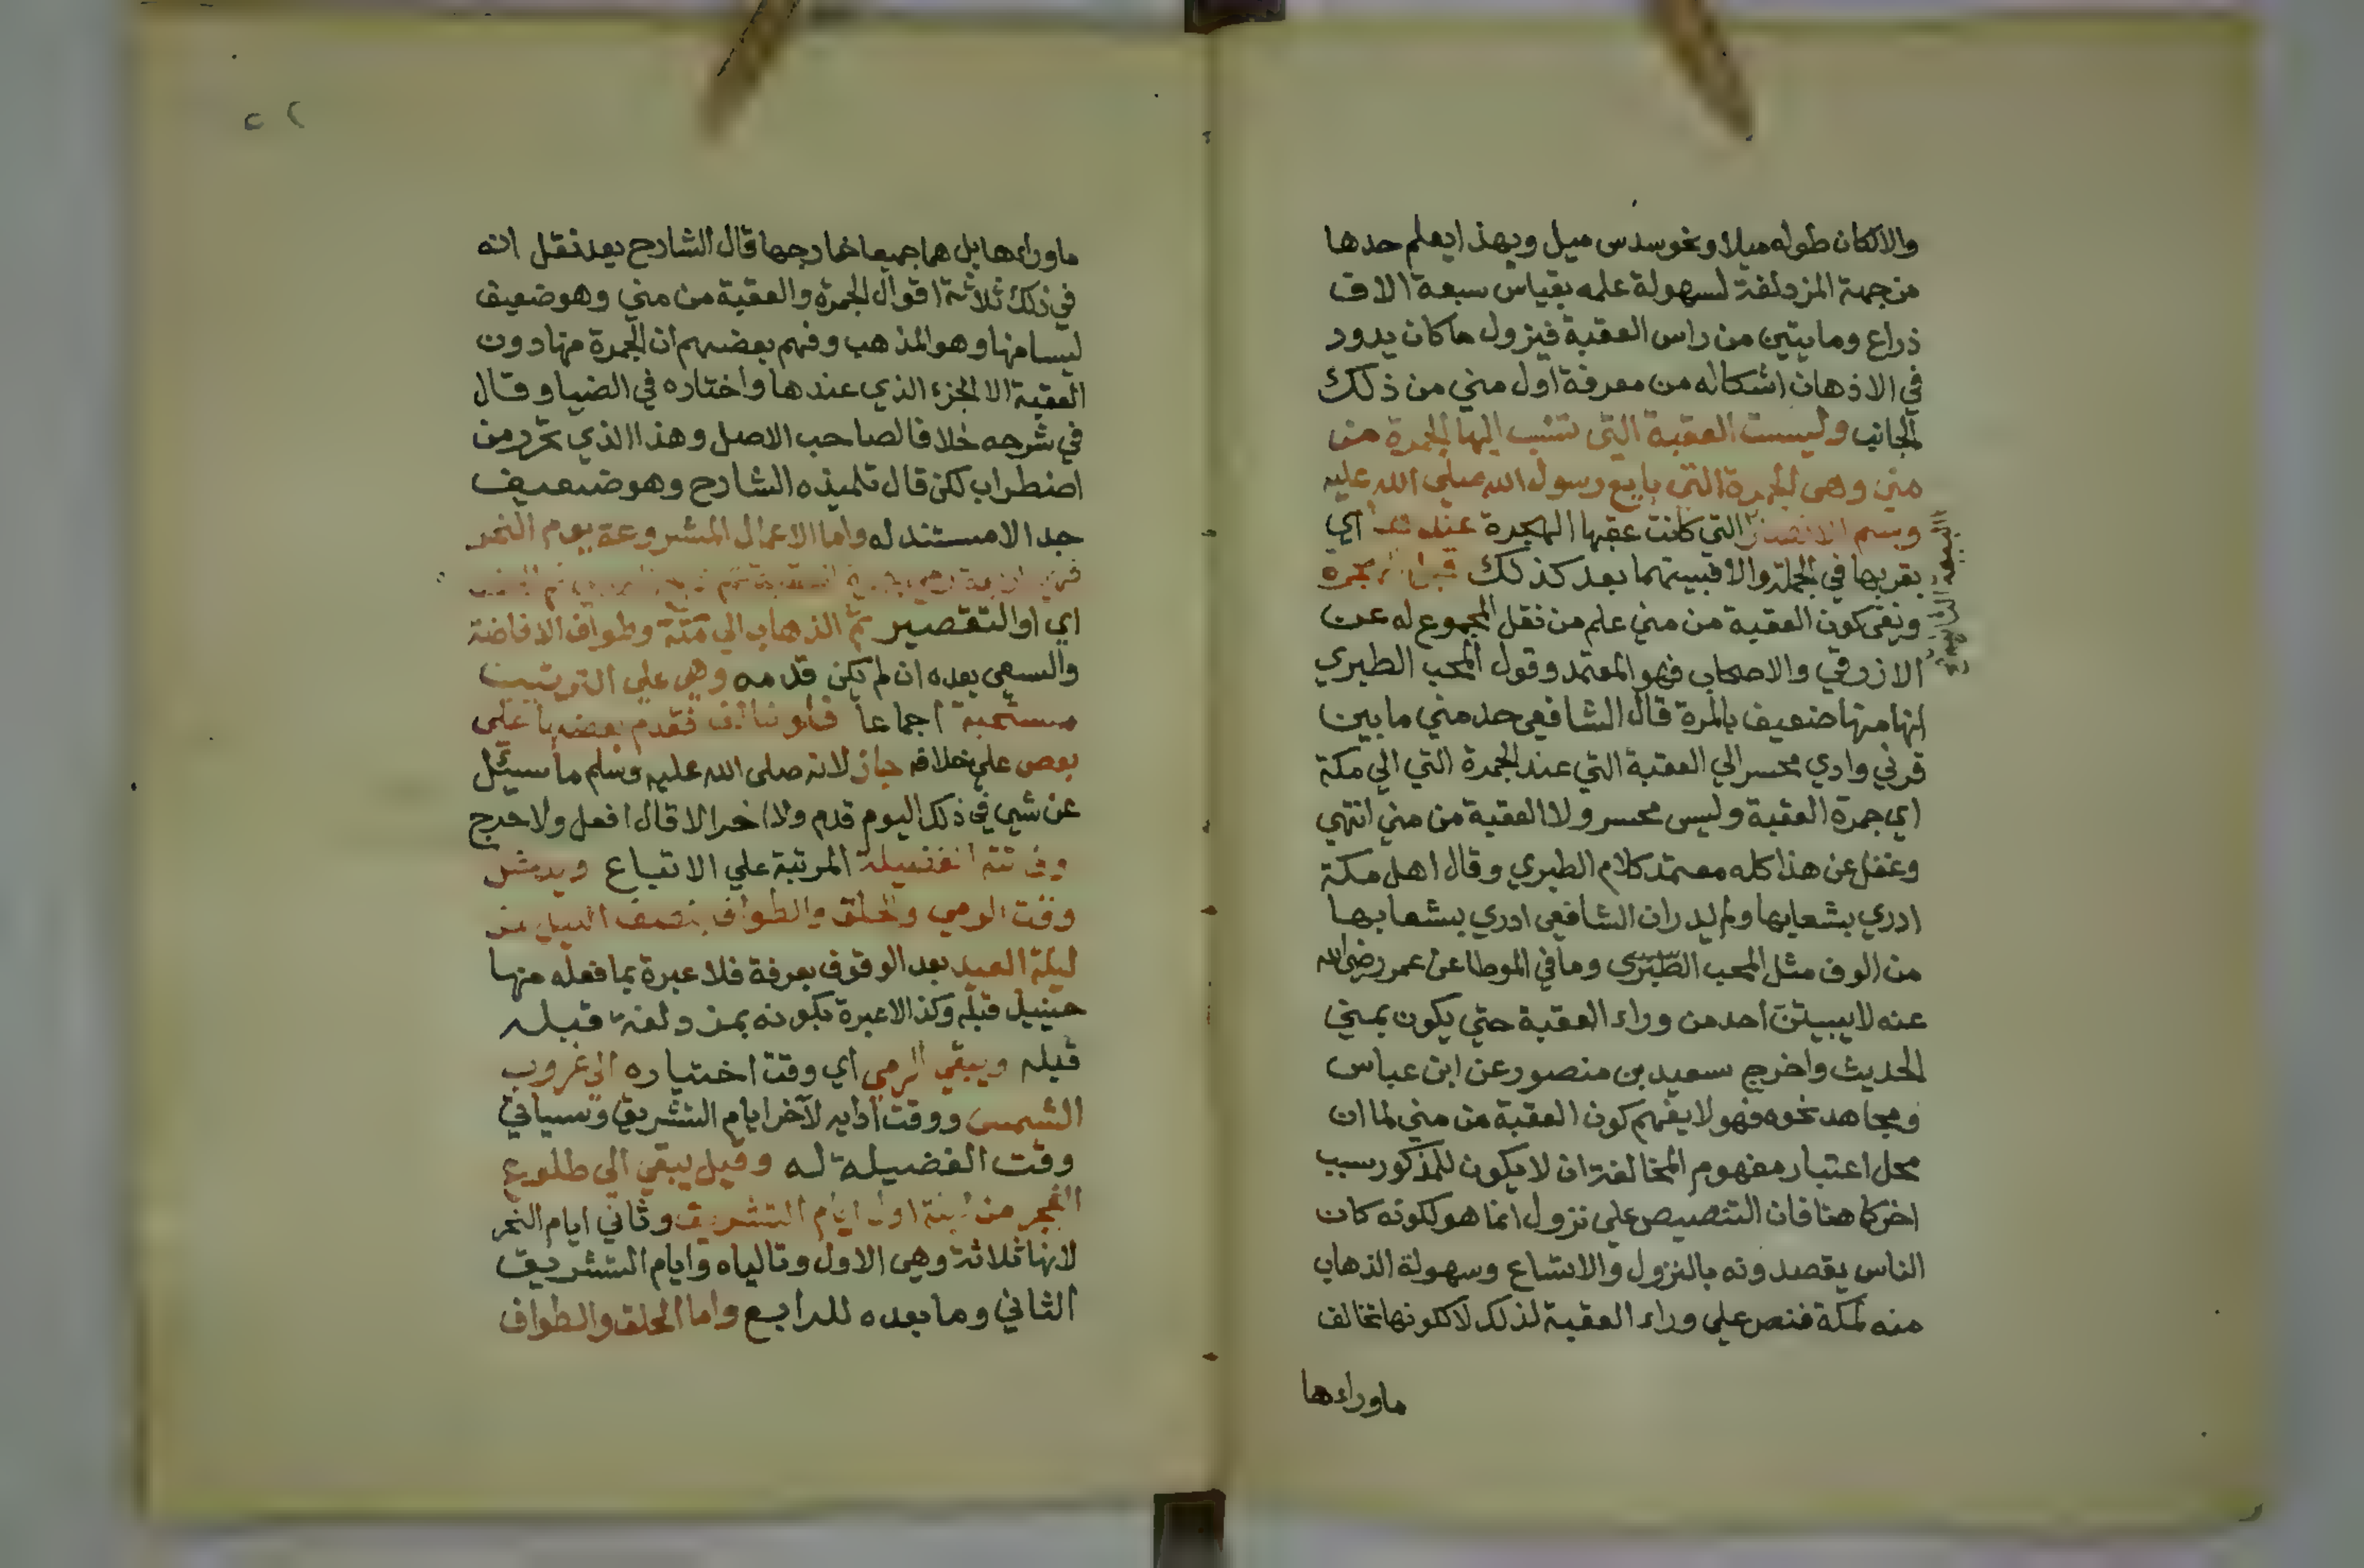 والالكان طوله ميلا ونحو سدس ميل وبهذا يعلم حدها
من جهة المزدلفة لسهولة علمه بقياس سبعة الاف
ذراع ومايتين من راس العقبة فيزول ما كان يدور
في الاذهان اشكاله من معرفة اول مني من ذلك
الجانب وليست العقبة التي تنسب اليها الجمرة من
مني وهي الجمرة التي بايع رسول الله صلى الله عليه
وسلم الانصار التي كانت عقبها الهجرة عندها اي
بقربها في الجملة والا فبينهما بعد كذلك قبل الهجرة
ونفي كون العقبة من مني علم من نقل المجموع له عن
الازرقي والاصحاب فهو المعتمد وقول المحب الطبري
انها منها ضعيف بالمرة قال الشافعي حد مني ما بين
قرني وادي محسر الي العقبة التي عند الجمرة التي الي مكة
اي جمرة العقبة وليس محسر ولا العقبة من مني انتهي
وغفل عن هذا كله معتمد كلام الطبري وقال اهل مكة
ادري بشعابها ولم يدر ان الشافعي ادري بشعابها
من الوف مثل المحب الطبري وما في الموطا عن عمر رضي الله
عنه لا يبيتن احد من وراء العقبة حتي يكون بمني
الحديث واخرج سعيد بن منصور عن ابن عباس
ومجاهد نحوه فهو لا يفهم كون العقبة من مني لما ان
محل اعتبار مفهوم المخالفة ان لا يكون للمذكور سبب
اخر كما هنا فان التنصيص علي نزول انما هو لكونه كان
الناس يقصدونه بالنزول والاتساع وسهولة الذهاب
منه لمكة فنص علي وراء العقبة لذلك لا لكونها تخالف
ماوراءها
ماوراءها بل هما جميعا خارجها قال الشارح بعد نقل انه
في ذلك ثلاثة اقوال الجمرة والعقبة من مني وهو ضعيف
ليسا منها وهو المذهب وفهم بعضهم ان الجمرة منها دون
العقبة الا الجزء الذي عندها واختاره في الضيا وقال
في شرحه خلافا لصاحب الاصل وهذا الذي تحرر من
اضطراب لكن قال تلميذه الشارح وهو ضعيف
جدا لا مستند له واما الاعمال المشروعة يوم النحر
اي او التقصير ثم الذهاب الي مكة وطواف الافاضة
والسعي بعده ان لم يكن قدمه وهي علي الترتيب
مستحبة اجماعا فلو خالف فقدم بعضها على
بعض علي خلافه جاز لانه صلى الله عليه وسلم ما سيئل
عن شيي في ذلك اليوم قدم ولا اخر الا قال افعل ولا حرج
وفاتته الفضيلة المرتبة علي الاتباع ويدخل
وقت الرمي والحلق والطواف بنصف الليل من
ليلة العيد بعد الوقوف بعرفة فلا عبرة بما فعله منها
حينيل قبله وكذا لا عبرة بكونه بمزدلفة قبله
قبله ويبقي الرمي اي وقت اختياره الي غروب
الشمس ووقت ادايه لآخر ايام التشريق وسياتي
وقت الفضيلة له وقيل يبقي الي طلوع
الفجر من ليلة اول ايام التشريق وثاني ايام النحر
لانها ثلاثة وهي الاول وتالياه وايام التشريق
الثاني وما بعده للرابع واما الحلق والطواف